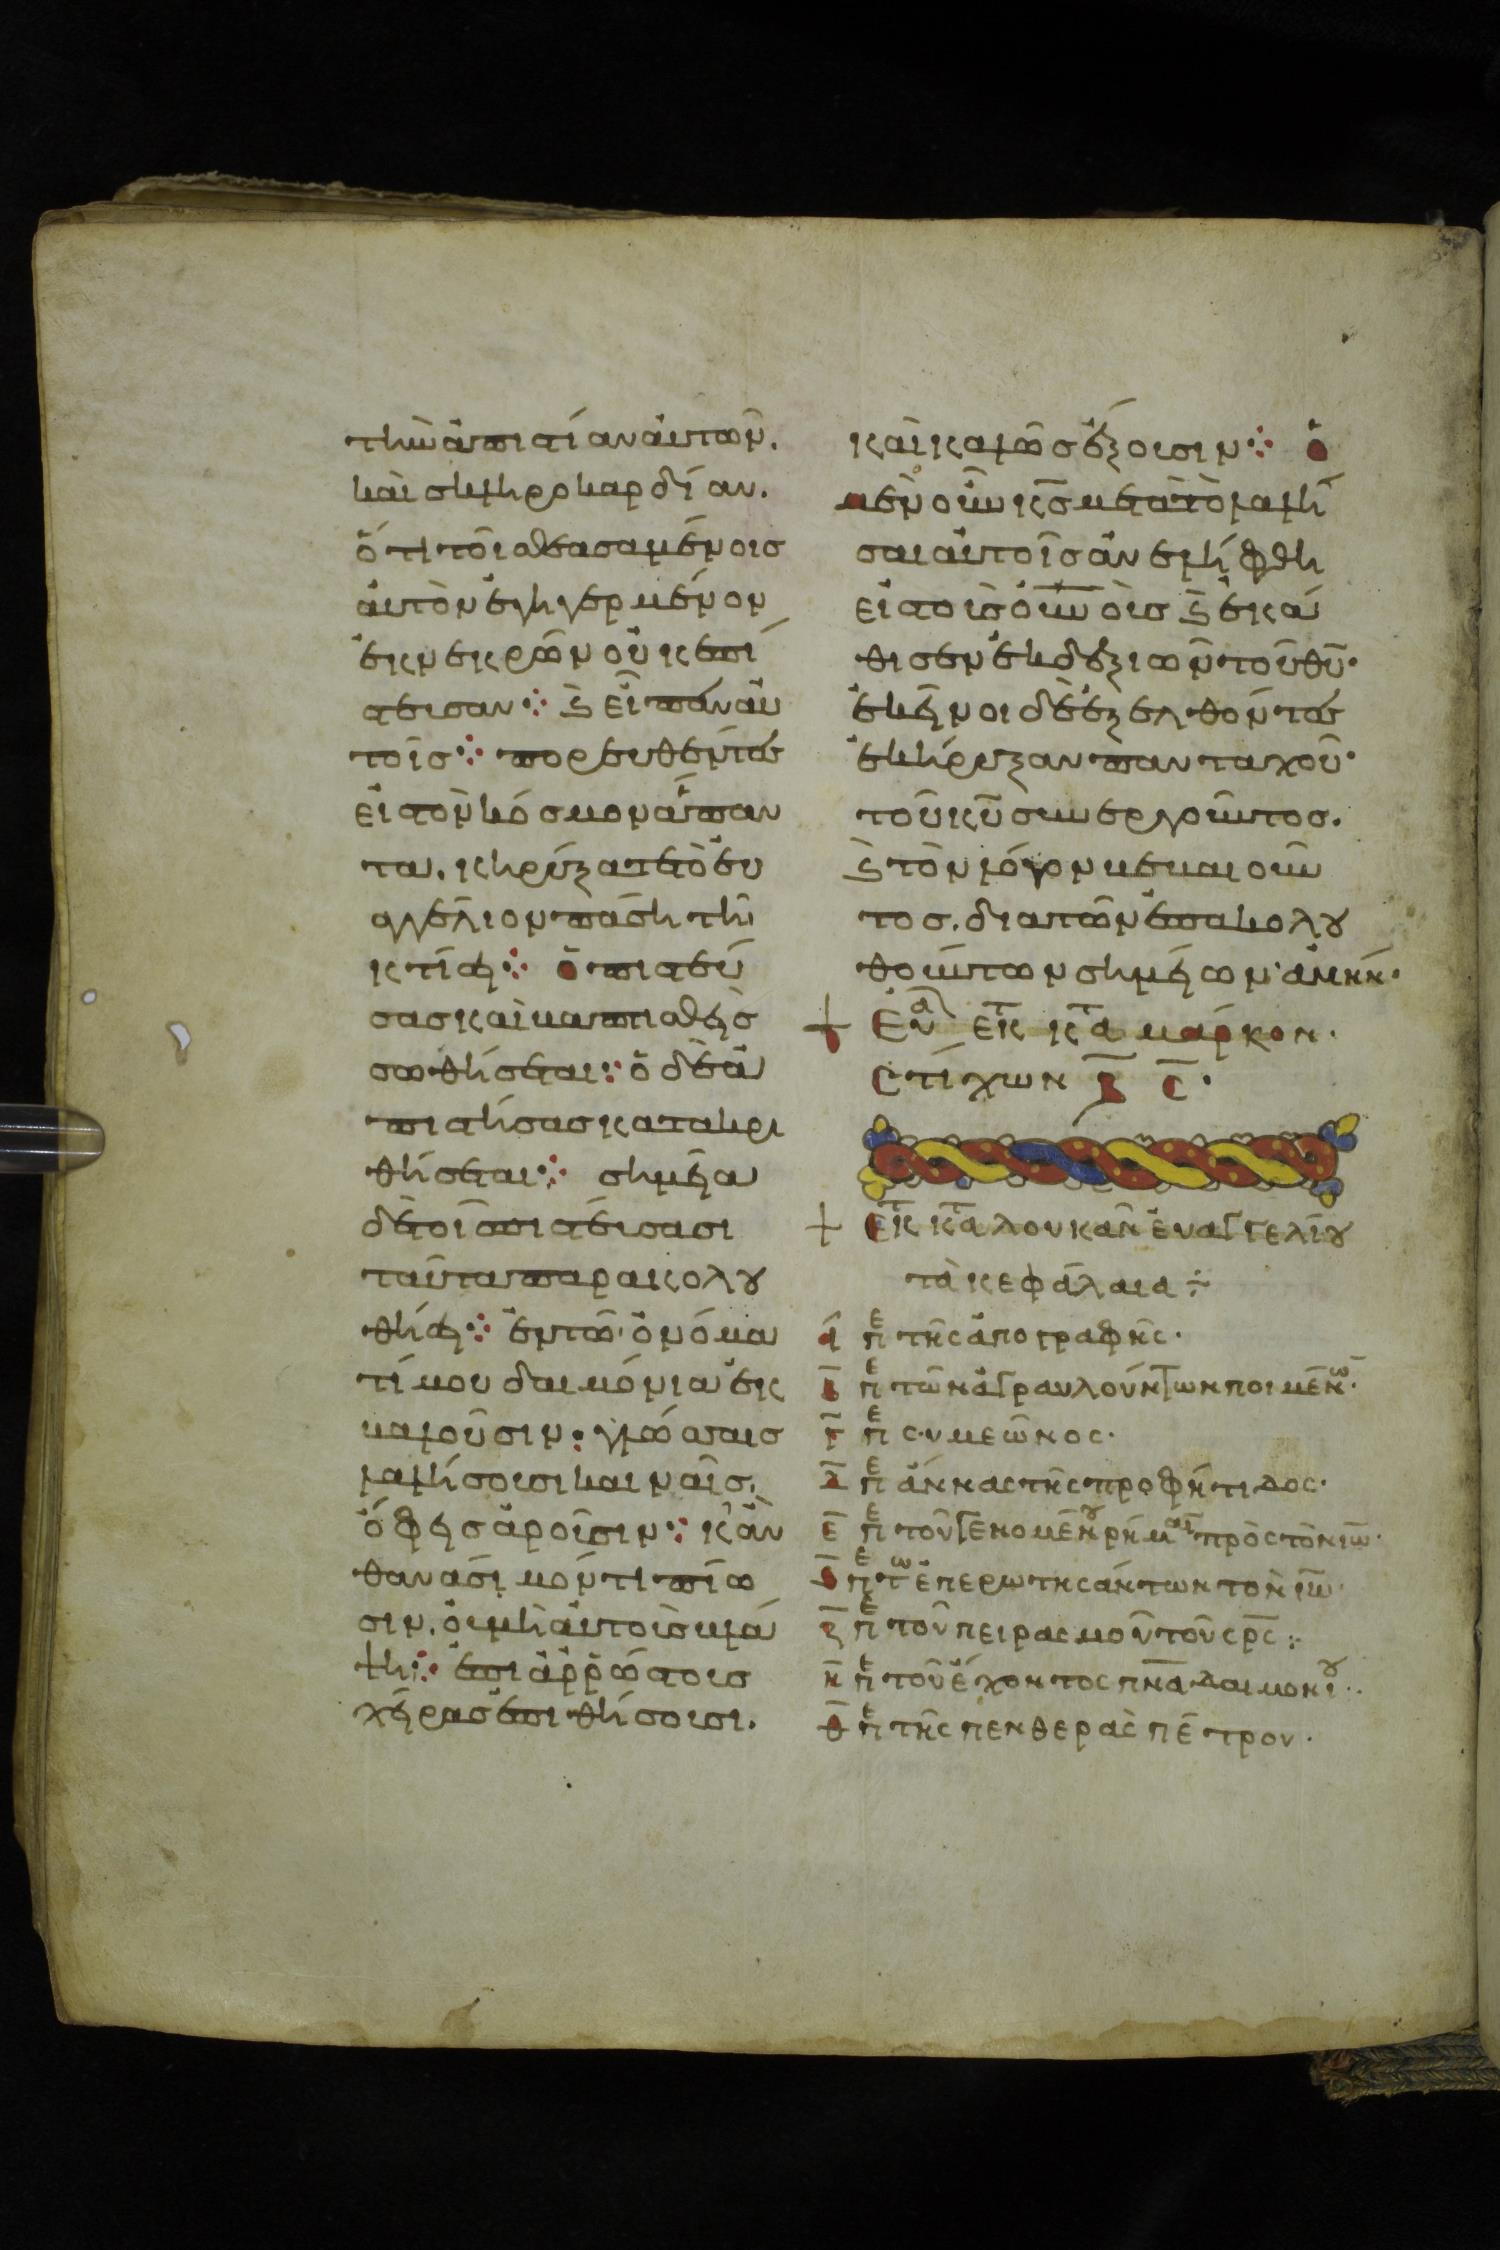 τὴν ἀπιστίαν αὐτῶν.
καὶ σκληροκαρδίαν.
ὅτι τοῖς θεασαμένοις
αὐτὸν ἐγηγερμένον
ἐκ νεκρῶν οὐκ ἐπί
στευσαν ⁘ καὶ εἶπεν αὐ
τοῖς ⁘ πορευθέντες
εἰς τὸν κόσμον ἅπαν
τα. κηρύξατε τὸ εὐ
αγγέλιον πάση τῆ
κτίσει ⁘ ὁ πιστεύ
σας καὶ βαπτισθεὶς
σωθήσεται ⁘ ὁ δὲ ἀ
πιστήσας κατακρι
θήσεται ⁘ σημεῖα
δὲ τοῖς πιστεύσασι
ταῦτα παρακολου
θήσει ⁘ ἐν τῶ ὀνόμα
τί μου δαιμόνια ἐκ
βαλοῦσιν ⁘ γλώσσαις
λαλήσουσι καιναῖς.
ὄφεις ἀροῦσιν ⁘ κἂν
θανάσιμόν τι πίω
σιν. οὐ μὴ αὐτοὺς βλά
ψη ⁘ ἐπὶ ἀρρώστους
χεῖρας ἐπιθήσουσι.
καὶ καλῶς ἕξουσιν ⁘ ὁ
μὲν οὖν κ̅ς̅ μετὰ τὸ λαλῆ
σαι αὐτοῖς ἀνελήφθη
εἰς τοὺς ο̅υ̅ν̅ους καὶ ἐκά
θισεν ἐκ δεξιῶν τοῦ θ̅υ̅.
ἐκεῖνοι δὲ ἐξελθόντες
ἐκήρυξαν πανταχοῦ.
τοῦ κ̅υ̅ συνεργοῦντος.
καὶ τὸν λόγον βεβαιοῦν
τος. διὰ τῶν ἐπακολου
θούντων σημείων ἀμήν.
+ Εὐα ἐκ κτα μάρκον.
Στίχων
+ ἐκ κτα λουκᾶν ἐυαγγελίου
τὰ κεφάλαια ÷
α̅ πε τῆς ἀπογραφῆς.
β̅ πε τῶν ἀγραυλούντων ποιμένω.
γ̅ πε συμεῶνος.
δ̅ πε ἄννας τῆς προφήτιδος.
ε̅ πε τοῦ γενομένου ρήματ πρὸς τὸν ι̅ω̅.
ς̅ πε τω ἐπερωτησάντων τὸν ι̅ω̅.
ζ̅ πε τοῦ πειρασμοῦ τοῦ σ̅ρ̅ς̅ ⁘
η̅ πε τοῦ ἔχοντος π̅ν̅α̅ δαιμονίου.
θ̅ πε τῆς πενθερᾶς πέτρου.